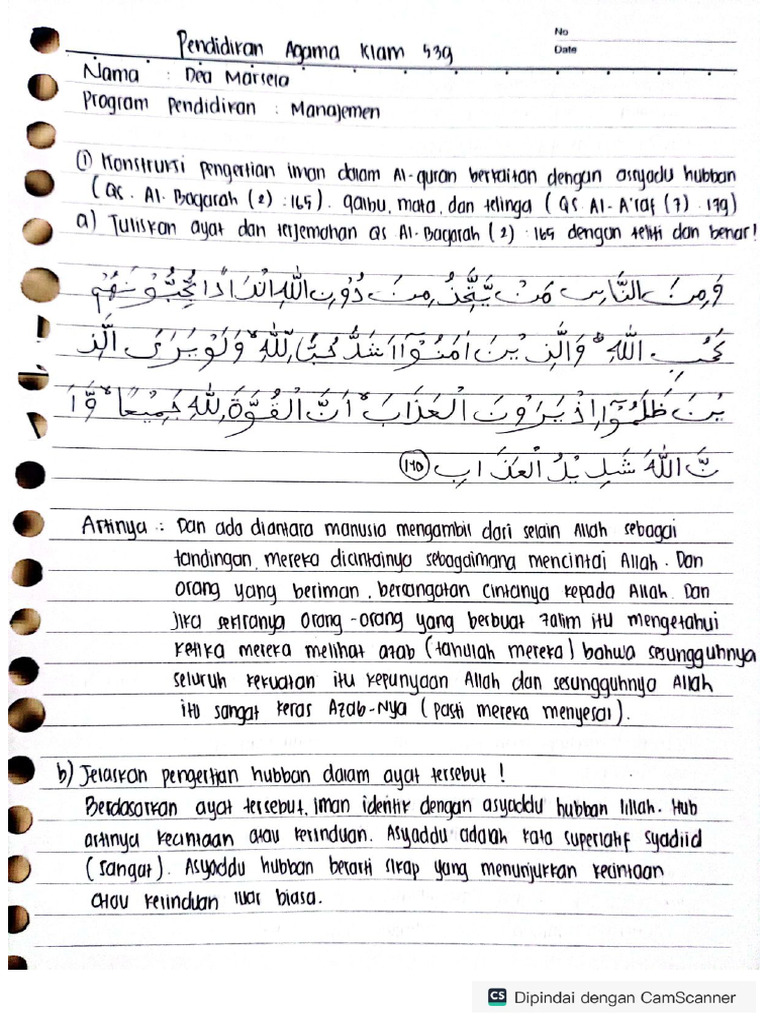 Pendidikan Agama Klam 53g
No
Date
Nama : Dea Marsela
Program Pendidikan : Manajemen
① Konstruksi pengertian iman dalam Al-quran berkaitan dengan assyadu hubban
(QS. Al. Baqarah (2) : 165). qalbu, mata, dan telinga ( QS Al- A'raf (7) . 179)
a) Tuliskan ayat dan terjemahan QS Al-Baqarah ( 2) . 165 dengan teliti dan benar!
وَمِنَ النَّاسِ مَنْ يَّتَّخِذُ مِنْ دُوْنِ اللّٰهِ اَنْدَادًا يُّحِبُّوْنَهُمْ
كَحُبِّ اللّٰهِ ۗ وَالَّذِيْنَ اٰمَنُوْٓا اَشَدُّ حُبًّا لِّلّٰهِ ۗ وَلَوْ يَرَى الَّذِ
يْنَ ظَلَمُوْٓا اِذْ يَرَوْنَ الْعَذَابَ ۙ اَنَّ الْقُوَّةَ لِلّٰهِ جَمِيْعًا ۙ وَّاَ
نَّ اللّٰهَ شَدِيْدُ الْعَذَابِ (١٦٥)
Artinya : Dan ada diantara manusia mengambil dari selain Allah sebagai
tandingan, mereka dicintainya sebagaimana mencintai Allah. Dan
orang yang beriman, bersangatan cintanya kepada Allah. Dan
Jika sekiranya orang-orang yang berbuat zalim itu mengetahui
ketika mereka melihat azab (tahulah mereka) bahwa sesungguhnya
seluruh kekuatan itu kepunyaan Allah dan sesungguhnya Allah
itu sangat keras Azab-Nya (pasti mereka menyesal).
b) Jelaskan pengertian hubban dalam ayat tersebut !
Berdasarkan ayat tersebut, iman identik dengan asyaddu hubban lillah. Hub
artinya kecintaan atau kerinduan. Asyaddu adalah kata superlatif syadiid
(sangat). Asyaddu hubban berarti sikap yang menunjukkan kecintaan
atau kerinduan luar biasa.
CS Dipindai dengan CamScanner